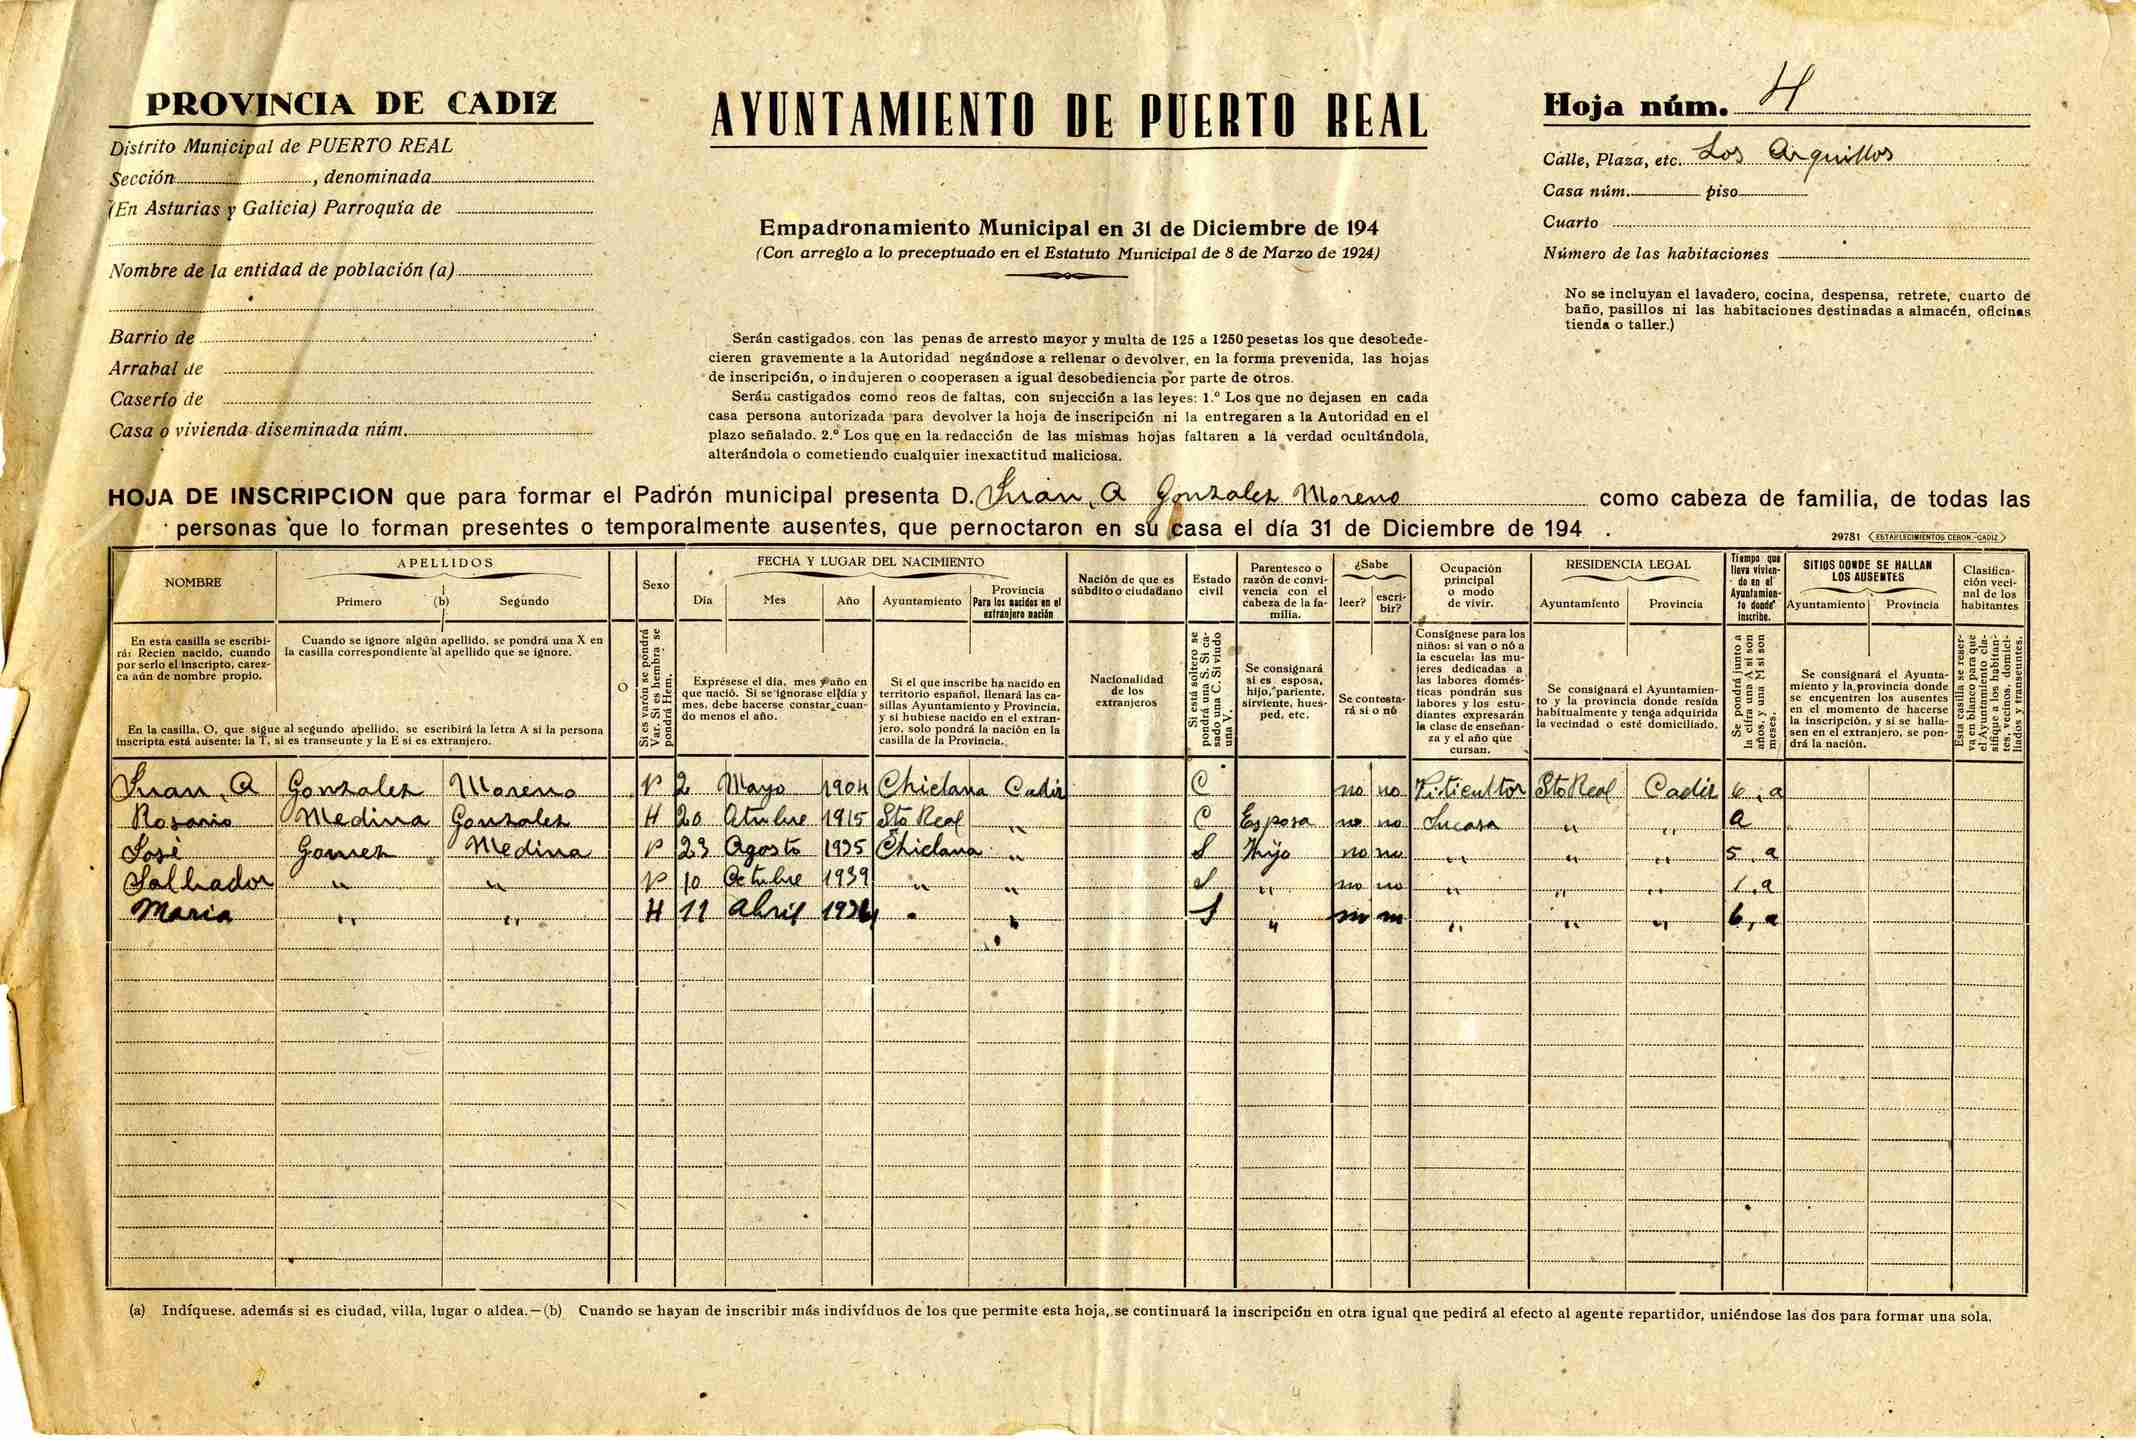 PROVINCIA DE CADIZ
Distrito Municipal de PUERTO REAL
Sección , denominada
(En Asturias y Galicia) Parroquia de
Nombre de la entidad de población (a)
Barrio de
Arrabal de
Caserío de
Casa o vivienda diseminada núm.
AYUNTAMIENTO DE PUERTO REAL
Empadronamiento Municipal en 31 de Diciembre de 194
(Con arreglo a lo preceptuado en el Estatuto Municipal de 8 de Marzo de 1924)
Serán castigados con las penas de arresto mayor y multa de 125 a 1250 pesetas los que desobede-
cieren gravemente a la Autoridad negándose a rellenar o devolver, en la forma prevenida, las hojas
de inscripción, o indujeren o cooperasen a igual desobediencia por parte de otros.
Serán castigados como reos de faltas, con sujección a las leyes: 1.º Los que no dejasen en cada
casa persona autorizada para devolver la hoja de inscripción ni la entregaren a la Autoridad en el
plazo señalado. 2.º Los que en la redacción de las mismas hojas faltaren a la verdad ocultándola,
alterándola o cometiendo cualquier inexactitud maliciosa.
Hoja núm.
Calle, Plaza, etc. Los Arquillos
Casa núm. piso
Cuarto
Número de las habitaciones
No se incluyan el lavadero, cocina, despensa, retrete, cuarto de
baño, pasillos ni las habitaciones destinadas a almacén, oficinas
tienda o taller.)
HOJA DE INSCRIPCION que para formar el Padrón municipal presenta D. Juan, A Gonzalez Moreno como cabeza de familia, de todas las
personas que lo forman presentes o temporalmente ausentes, que pernoctaron en su casa el día 31 de Diciembre de 194 .
29781 ESTABLECIMIENTOS CERON.-CADIZ
NOMBRE
APELLIDOS
Primero (b) Segundo
Sexo
FECHA Y LUGAR DEL NACIMIENTO
Día Mes Año Ayuntamiento
Provincia
Para los nacidos en el
extranjero nación
Nación de que es
súbdito o ciudadano
Estado
civil
Parentesco o
razón de convi-
vencia con el
cabeza de la fa-
milia.
¿Sabe
leer? escri-
bir?
Ocupación
principal
o modo
de vivir.
RESIDENCIA LEGAL
Ayuntamiento Provincia
Tiempo que
lleva vivien-
do en el
Ayuntamien-
to donde
inscribe.
SITIOS DONDE SE HALLAN
LOS AUSENTES
Ayuntamiento Provincia
Clasifica-
ción veci-
nal de los
habitantes
En esta casilla se escribi-
rá: Recien nacido, cuando
por serlo el inscripto, carez-
ca aún de nombre propio.
Cuando se ignore algún apellido, se pondrá una X en
la casilla correspondiente al apellido que se ignore.
En la casilla, O, que sigue al segundo apellido, se escribirá la letra A si la persona
inscripta está ausente; la T, si es transeunte y la E si es extranjero.
O
Si es varón se pondrá
Var. Si es hembra se
pondrá Hem.
Exprésese el día, mes y año en
que nació. Si se ignorase el día y
mes, debe hacerse constar cuan-
do menos el año.
Si el que inscribe ha nacido en
territorio español, llenará las ca-
sillas Ayuntamiento y Provincia,
y si hubiese nacido en el extran-
jero, solo pondrá la nación en la
casilla de la Provincia.
Nacionalidad
de los
extranjeros
Si está soltero se
pondrá una S. Si ca-
sado una C. Si viudo
una V.
Se consignará
si es esposa,
hijo, pariente,
sirviente, hues-
ped, etc.
Se contesta-
rá si o nó
Consígnese para los
niños: si van o nó a
la escuela: las mu-
jeres dedicadas a
las labores domés-
ticas pondrán sus
labores y los estu-
diantes expresarán
la clase de enseñan-
za y el año que
cursan.
Se consignará el Ayuntamien-
to y la provincia donde resida
habitualmente y tenga adquirida
la vecindad o esté domiciliado.
Se pondrá junto a
la cifra una A si son
años, y una M si son
meses.
Se consignará el Ayunta-
miento y la provincia donde
se encuentren los ausentes
en el momento de hacerse
la inscripción, y si se halla-
sen en el extranjero, se pon-
drá la nación.
Esta casilla se reser-
va en blanco para que
el Ayuntamiento cla-
sifique a los habitan-
tes, vecinos, domici-
liados y transeuntes.
Juan, A Gonzalez Moreno V 2 Mayo 1904 Chiclana Cadiz C no no Viticultor Pto Real Cadiz 6, a
Rosario Medina Gonzalez H 20 Atubre 1915 Pto Real " C Esposa no no Sucasa " " a
José Gomez Medina V 23 Agosto 1935 Chiclana " S Hijo no no " " " 5, a
Salbador " " V 10 Octubre 1939 " " S " no no " " " 1, a
Maria " " H 11 Abril " S " no no " " " 6, a
(a) Indíquese. además si es ciudad, villa, lugar o aldea.—(b) Cuando se hayan de inscribir más indivíduos de los que permite esta hoja, se continuará la inscripción en otra igual que pedirá al efecto al agente repartidor, uniéndose las dos para formar una sola.